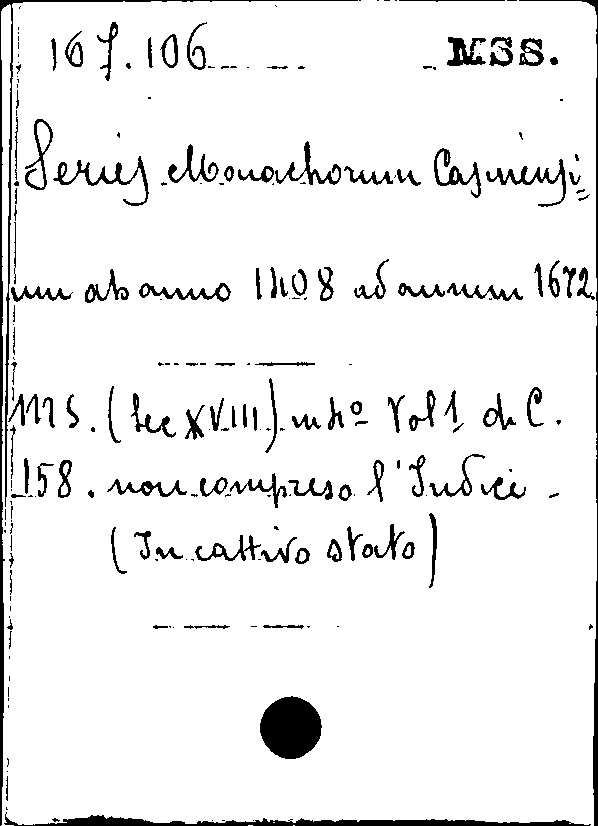 167.106 MSS.
Series Monachorum Casinensi=
um ab anno 1408 ad annum 1672.
MS. (Sec XVIII) in 4º Vol 1. di C.
158. non compreso l'Indice -
(In cattivo stato)